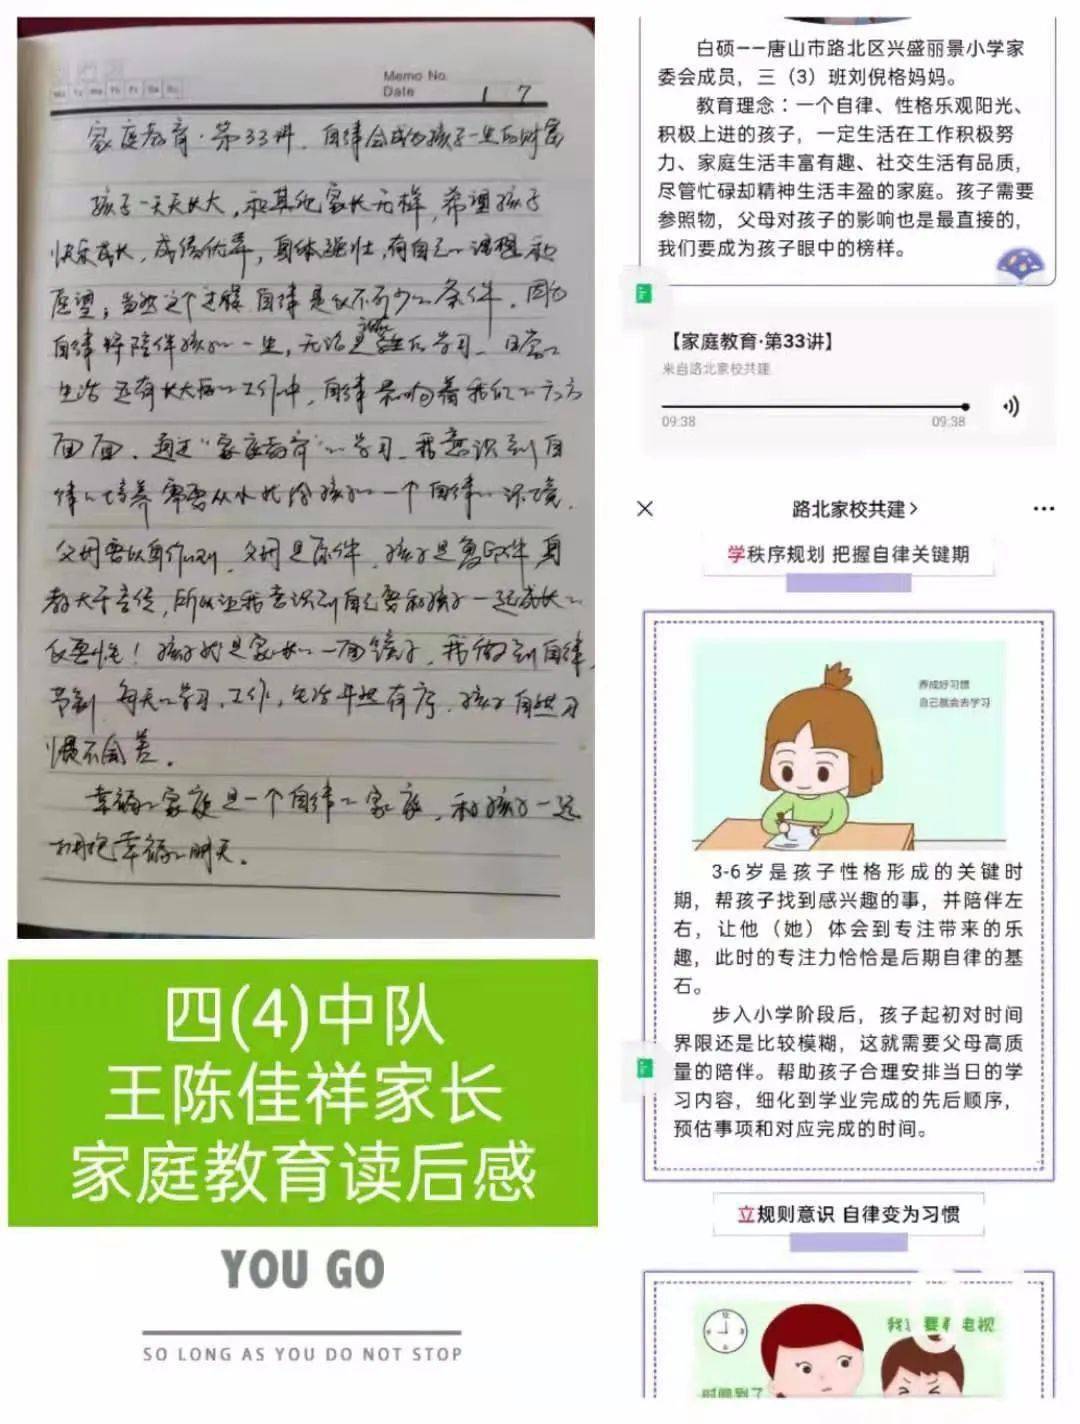 Memo No.
Date 1 7
Mo Tu We Th Fr Sa Su
家庭教育·第33讲、自律会成为孩子一生的财富
孩子一天天长大，和其他家长无样，希望孩子
快乐成长，成绩优异，身体强壮，有自己的理想和
愿望，当然这个过程自律是必不可少的条件，因为
自律将陪伴孩子的一生，无论是
学习、日常的
生活还有长大后的工作中，自律影响着我们的方方
面面，通过“家庭教育”的学习、我意识到自
律的培养需要从小就给孩子一个自律的环境，
父母要以身作则、父母是原件，孩子是复印件，身
教大于言传，所以让我意识到自己要和孩子一起成长的
必要性！孩子就是家长的一面镜子，我做到自律、
节制，每天的学习、工作，生活井然有序，孩子自然习
惯不会差。
幸福的家庭是一个自律的家庭，和孩子一起
拥抱幸福的明天。
四(4)中队
王陈佳祥家长
家庭教育读后感
YOU GO
SO LONG AS YOU DO NOT STOP
白硕——唐山市路北区兴盛丽景小学家
委会成员，三（3）班刘倪格妈妈。
教育理念：一个自律、性格乐观阳光、
积极上进的孩子，一定生活在工作积极努
力、家庭生活丰富有趣、社交生活有品质，
尽管忙碌却精神生活丰盈的家庭。孩子需要
参照物，父母对孩子的影响也是最直接的，
我们要成为孩子眼中的榜样。
【家庭教育·第33讲】
来自路北家校共建
09:38 09:38
路北家校共建
学秩序规划 把握自律关键期
养成好习惯
自己就会去学习
3-6岁是孩子性格形成的关键时
期，帮孩子找到感兴趣的事，并陪伴左
右，让他（她）体会到专注带来的乐
趣，此时的专注力恰恰是后期自律的基
石。
步入小学阶段后，孩子起初对时间
界限还是比较模糊，这就需要父母高质
量的陪伴。帮助孩子合理安排当日的学
习内容，细化到学业完成的先后顺序，
预估事项和对应完成的时间。
立规则意识 自律变为习惯
我 要看电视
时间到了